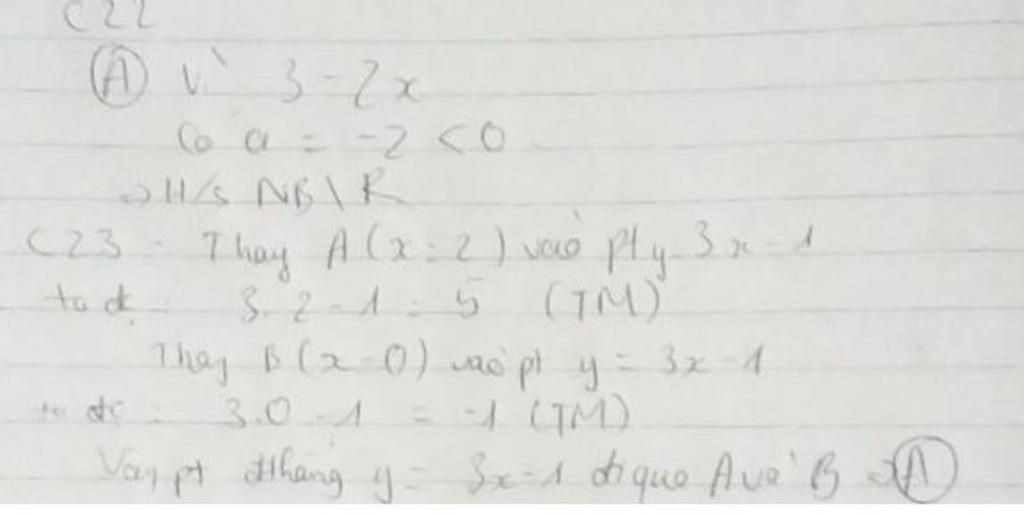 C22
A Vì 3 - 2x
Có a = -2 < 0
=> H/s NB \ R
C23 : Thay A (x = 2) vào pt y = 3x - 1
ta đc 3.2 - 1 = 5 (TM)
Thay B (x = 0) vào pt y = 3x - 1
ta đc : 3.0 - 1 = -1 (TM)
Vậy pt đthẳng y = 3x - 1 đi qua A và B => A